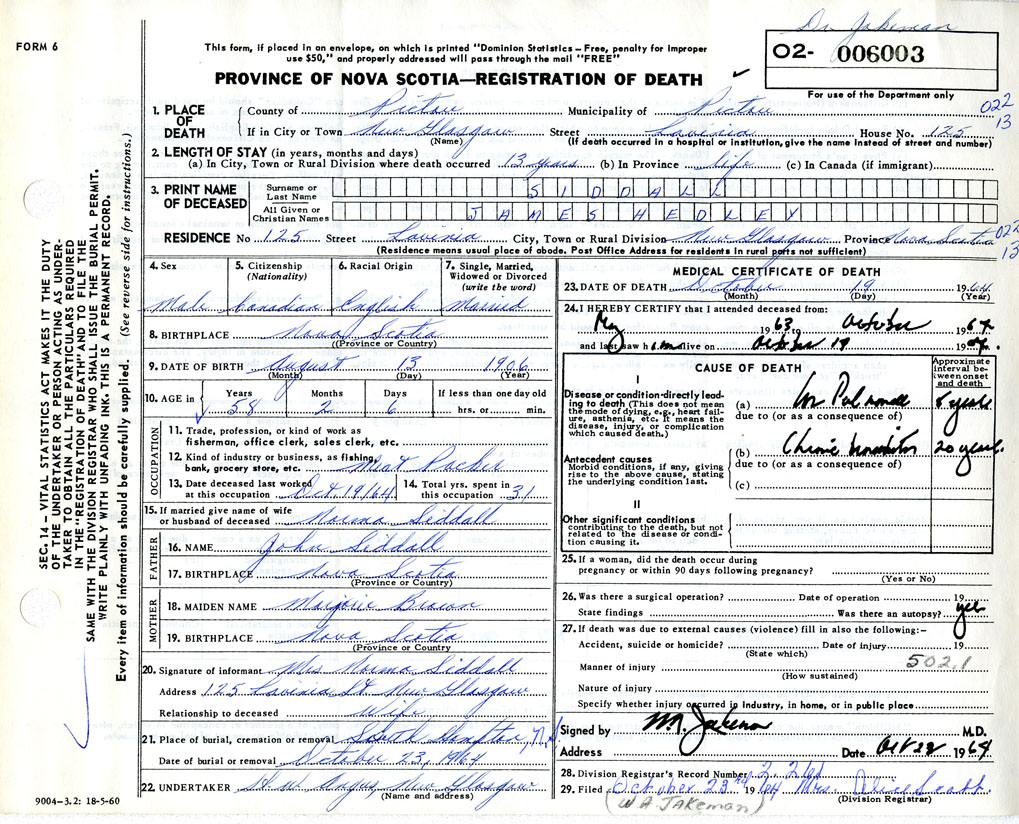 Dr. Jakeman
FORM 6
This form, if placed in an envelope, on which is printed "Dominion Statistics – Free, penalty for improper
use $50," and properly addressed will pass through the mail "FREE"
O2- 006003
PROVINCE OF NOVA SCOTIA—REGISTRATION OF DEATH
For use of the Department only
1. PLACE OF DEATH
County of Pictou Municipality of Pictou 022
If in City or Town New Glasgow Street Lavinia House No. 125 13
(Name) (If death occurred in a hospital or institution, give the name instead of street and number)
2. LENGTH OF STAY (in years, months and days)
(a) In City, Town or Rural Division where death occurred 13 years (b) In Province life (c) In Canada (if immigrant)
3. PRINT NAME OF DECEASED
Surname or Last Name SIDDALL
All Given or Christian Names JAMES HEDLEY
RESIDENCE No 125 Street Lavinia City, Town or Rural Division New Glasgow Province Nova Scotia 022
(Residence means usual place of abode. Post Office Address for residents in rural parts not sufficient) 13
4. Sex
Male
5. Citizenship (Nationality)
Canadian
6. Racial Origin
English
7. Single, Married, Widowed or Divorced (write the word)
Married
8. BIRTHPLACE Nova Scotia
(Province or Country)
9. DATE OF BIRTH August 13 1906
(Month) (Day) (Year)
10. AGE in Years Months Days If less than one day old
58 2 6 hrs. or min.
OCCUPATION
11. Trade, profession, or kind of work as
fisherman, office clerk, sales clerk, etc.
12. Kind of industry or business, as fishing,
bank, grocery store, etc. Meat Packer
13. Date deceased last worked
at this occupation Oct 19/64
14. Total yrs. spent in
this occupation 31
15. If married give name of wife
or husband of deceased Norma Siddall
FATHER
16. NAME John Siddall
17. BIRTHPLACE Nova Scotia
(Province or Country)
MOTHER
18. MAIDEN NAME Marjorie Brown
19. BIRTHPLACE Nova Scotia
(Province or Country)
20. Signature of informant Mrs Norma Siddall
Address 125 Lavinia St. New Glasgow
Relationship to deceased Wife
21. Place of burial, cremation or removal South
Date of burial or removal October 23, 1964
22. UNDERTAKER H. W. Angus, New Glasgow
(Name and address)
MEDICAL CERTIFICATE OF DEATH
23. DATE OF DEATH October 19 1964
(Month) (Day) (Year)
24. I HEREBY CERTIFY that I attended deceased from:
May 1963 October 1964
and last saw him alive on October 19 1964.
CAUSE OF DEATH
Approximate interval between onset and death
I
Disease or condition directly leading to death (This does not mean the mode of dying, e.g., heart failure, asthenia, etc. It means the disease, injury, or complication which caused death.)
(a) Cor Pulmonale 8 years
due to (or as a consequence of)
Antecedent causes
Morbid conditions, if any, giving rise to the above cause, stating the underlying condition last.
(b) Chronic bronchitis 20 years.
due to (or as a consequence of)
(c)
II
Other significant conditions
contributing to the death, but not related to the disease or condition causing it.
25. If a woman, did the death occur during
pregnancy or within 90 days following pregnancy?
(Yes or No)
26. Was there a surgical operation? Date of operation 19
State findings Was there an autopsy? yes
27. If death was due to external causes (violence) fill in also the following:–
Accident, suicide or homicide? Date of injury 19
(State which)
502.1
Manner of injury
(How sustained)
Nature of injury
Specify whether injury occurred in Industry, in home, or in public place
Signed by Jakeman M.D.
Address Date Oct 22 1964
28. Division Registrar's Record Number
29. Filed October 23rd 1964 Mrs. Alice
(Division Registrar)
(W A JAKEMAN)
SEC. 14 – VITAL STATISTICS ACT MAKES IT THE DUTY
OF THE UNDERTAKER OR PERSON ACTING AS UNDER-
TAKER TO OBTAIN ALL THE PARTICULARS REQUIRED
IN THE "REGISTRATION OF DEATH" AND TO FILE THE
SAME WITH THE DIVISION REGISTRAR WHO SHALL ISSUE THE BURIAL PERMIT.
WRITE PLAINLY WITH UNFADING INK. THIS IS A PERMANENT RECORD.
Every item of information should be carefully supplied. (See reverse side for instructions.)
9004–3.2: 18-5-60